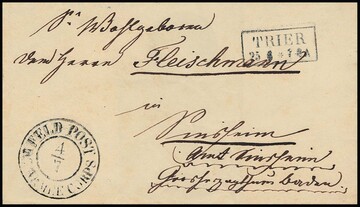 Sr Wohlgeboren
dem Herrn Fleischmann
TRIER
in
Sinsheim
Amt Sinsheim
Grosherzogthum Baden
FELD POST
4
7
CORPS